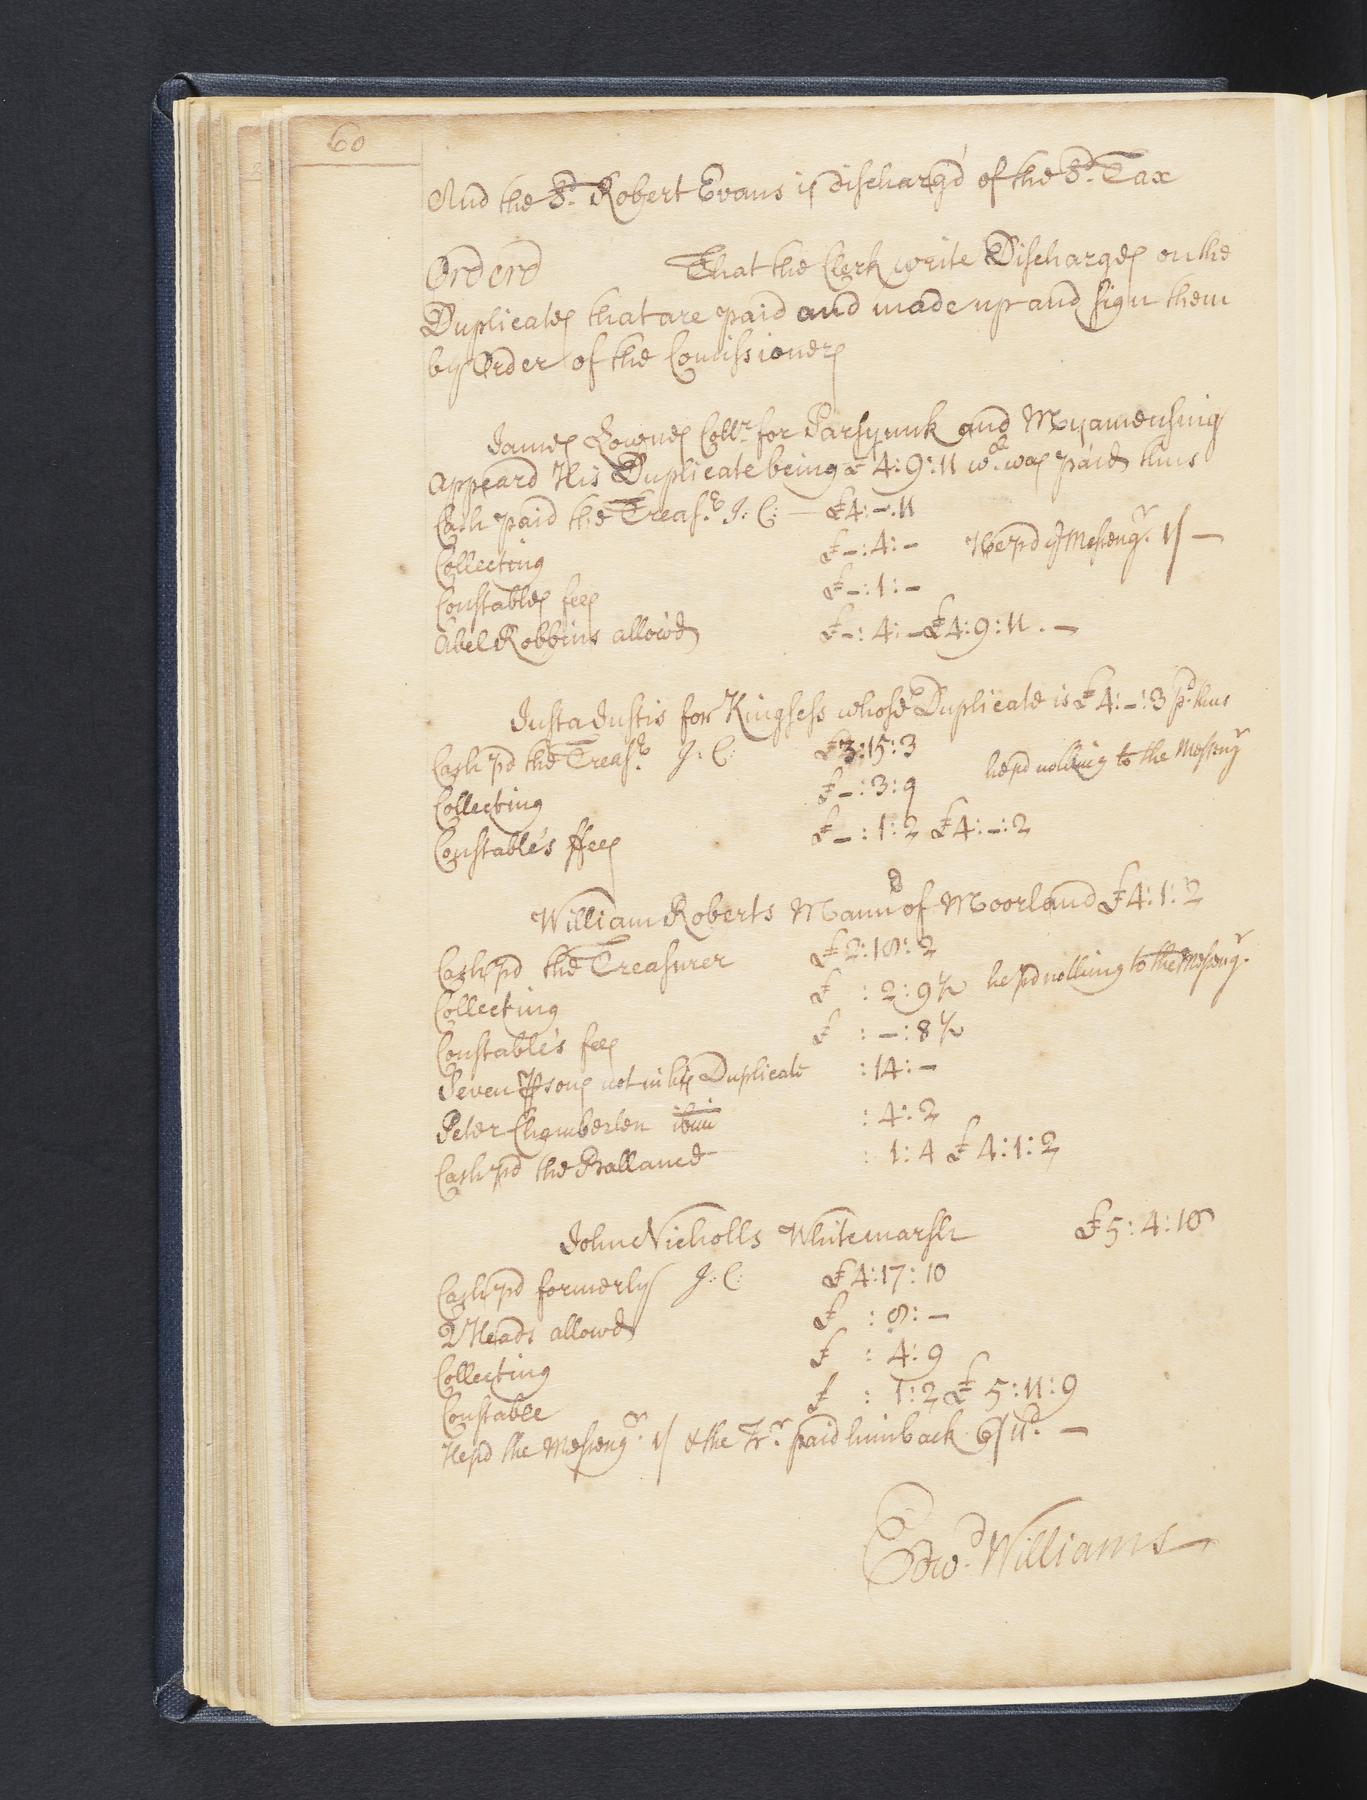 60
And the Sd. Robert Evans is Discharg'd of the Sd. Tax
Orderd That the Clerk write Discharges on the
Duplicates that are paid and made up and sign them
by Order of the Comissioners
James Lownes Collr. for Parsyunk and Myamensing
Appeard His Duplicate being £ 4:9:11 wch. was paid thus
Cash paid the Treasr. J: C: — £4:-:11
Collecting £-:4:- He pd ye Messengr. 1/ —
Constables fees £-:1:-
Abel Robbins allowd £-:4:- £4:9:11. —
Justa Justis for Kingsess whose Duplicate is £4:-:3 pd. thus
Cash pd the Treasr. J: C: £3:15:3
Collecting £-:3:9 he pd nothing to the Messengr
Constable's ffees £-:1:2 £4:-:2
William Roberts Mannd of Moorland £4:1:2
Cash pd the Treasurer £2:18:2
Collecting £ :2:9½ he pd nothing to the Messengr.
Constable's fees £ :-:8½
Seven Psons not in his Duplicate :14:-
Peter Chamberlen ibim :4:2
Cash pd the Ballance :1:4 £4:1:2
John Nicholls Whitemarsh £5:4:10
Cash pd formerly J: C: £4:17:10
2 Heads allowd £ :8:-
Collecting £ :4:9
Constable £ :1:2 £5:11:9
He pd the Messengr. 1/ & the Trr. paid him back 6/11d. —
Edwd. Williams